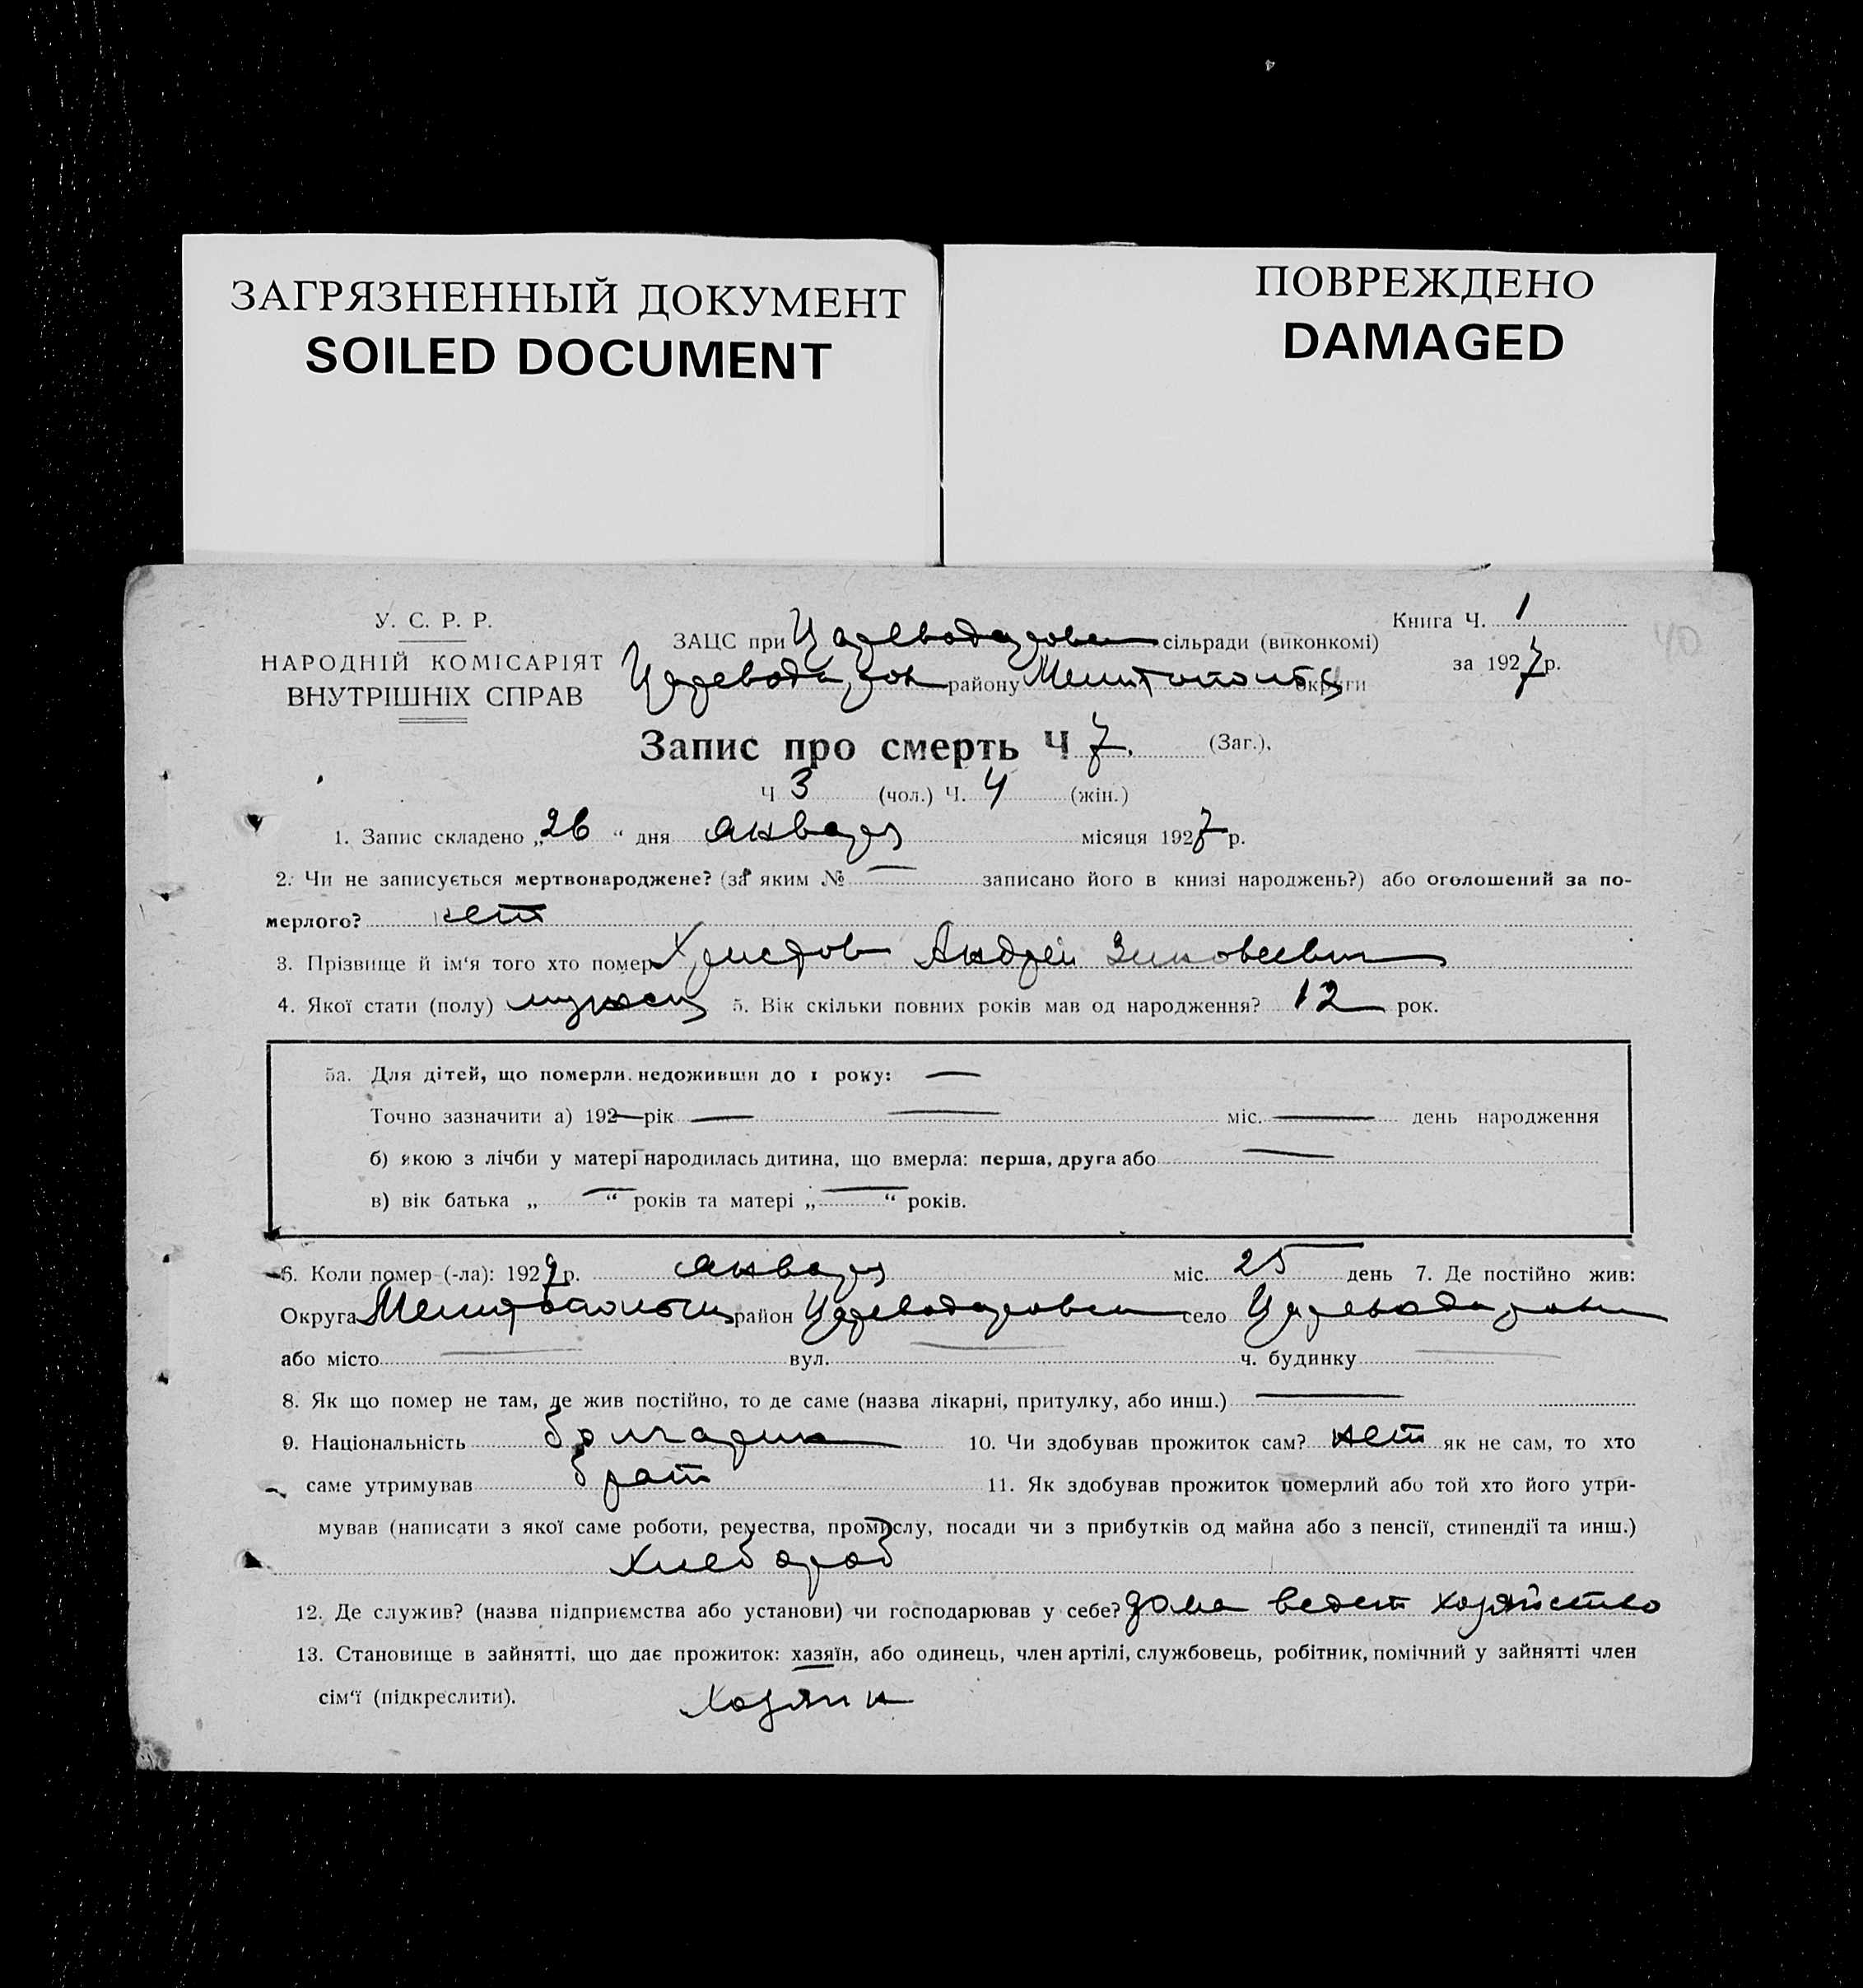 ЗАГРЯЗНЕННЫЙ ДОКУМЕНТ
SOILED DOCUMENT
ПОВРЕЖДЕНО
DAMAGED
У. С. Р. Р.
НАРОДНІЙ КОМІСАРІЯТ
ВНУТРІШНІХ СПРАВ
ЗАЦС при сільради (виконкомі)
району Мелитопольс округи
Книга Ч. 1
за 1927 р.
40
Запис про смерть Ч 7. (Заг.),
Ч 3 (чол.) Ч. 4 (жін.)
1. Запис складено „26 “ дня января місяця 1927 р.
2. Чи не записується мертвонароджене? (за яким № — записано його в книзі народжень?) або оголошений за по-
мерлого? нет
3. Прізвище й ім‘я того хто помер Христов Андрей Зиновеевич
4. Якої стати (полу) мужск 5. Вік скільки повних років мав од народження? 12 рок.
5а. Для дітей, що померли недоживши до 1 року: —
Точно зазначити а) 192— рік — — міс. — день народження
б) якою з лічби у матері народилась дитина, що вмерла: перша, друга або —
в) вік батька „ — “ років та матері „ — “ років.
6. Коли помер (-ла): 1927 р. января міс. 25 день 7. Де постійно жив:
Округа район село
або місто — вул. — ч. будинку —
8. Як що помер не там, де жив постійно, то де саме (назва лікарні, притулку, або инш.) —
9. Національність болгарин 10. Чи здобував прожиток сам? нет як не сам, то хто
саме утримував брат 11. Як здобував прожиток померлий або той хто його утри-
мував (написати з якої саме роботи, ремества, промислу, посади чи з прибутків од майна або з пенсії, стипендії та инш.)
хлебороб
12. Де служив? (назва підприємства або установи) чи господарював у себе? дома ведет хозяйство
13. Становище в зайнятті, що дає прожиток: хазяїн, або одинець, член артілі, службовець, робітник, помічний у зайнятті член
сім‘ї (підкреслити). хозяин